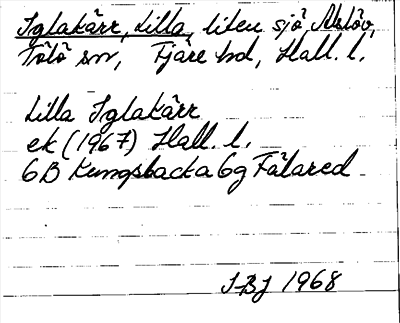 Iglakärr, Lilla, liten sjö, Alslöv,
Tölö sn, Fjäre hd, Hall. l.
Lilla Iglakärr
ek (1967) Hall. l.
6B Kungsbacka 6g Fälared
IBJ 1968